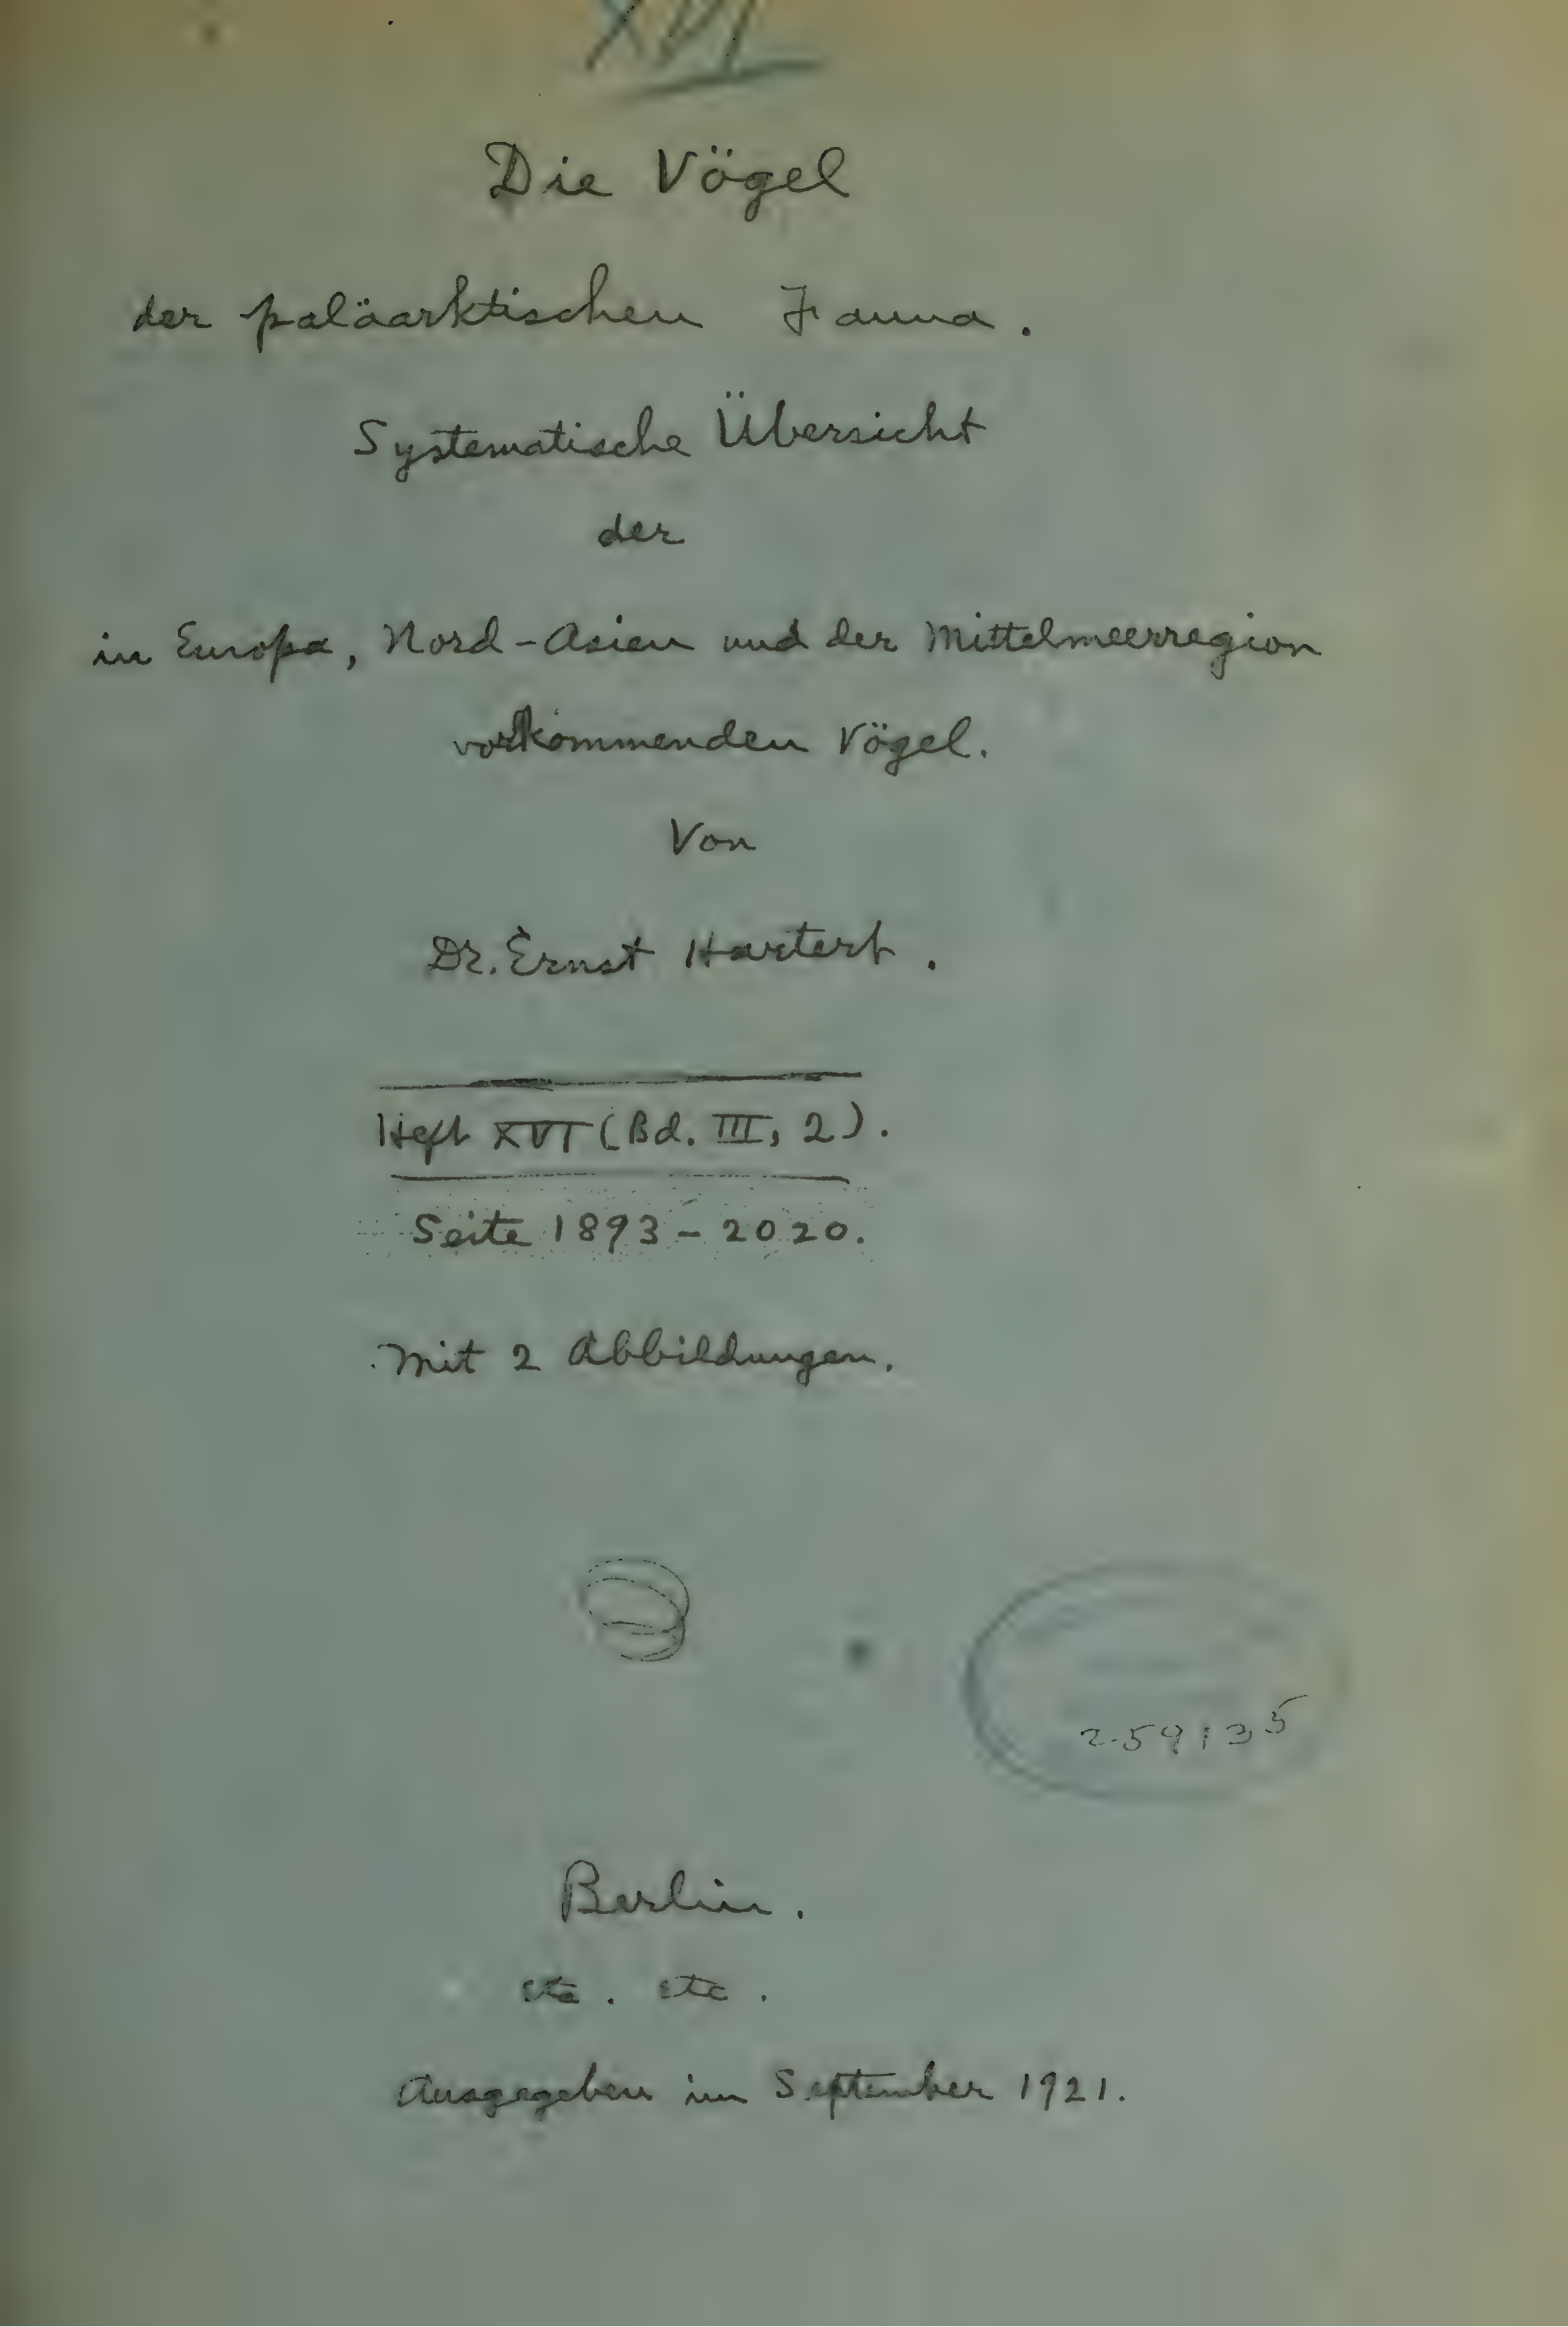 XVI
Die Vögel
der paläarktischen Fauna.
Systematische Übersicht
der
in Europa, Nord-Asien und der Mittelmeerregion
vorkommenden Vögel.
Von
Dr. Ernst Hartert.
Heft XVI (Bd. III, 2).
Seite 1893-2020.
Mit 2 Abbildungen.
259135
Berlin.
etc. etc.
Ausgegeben im September 1921.